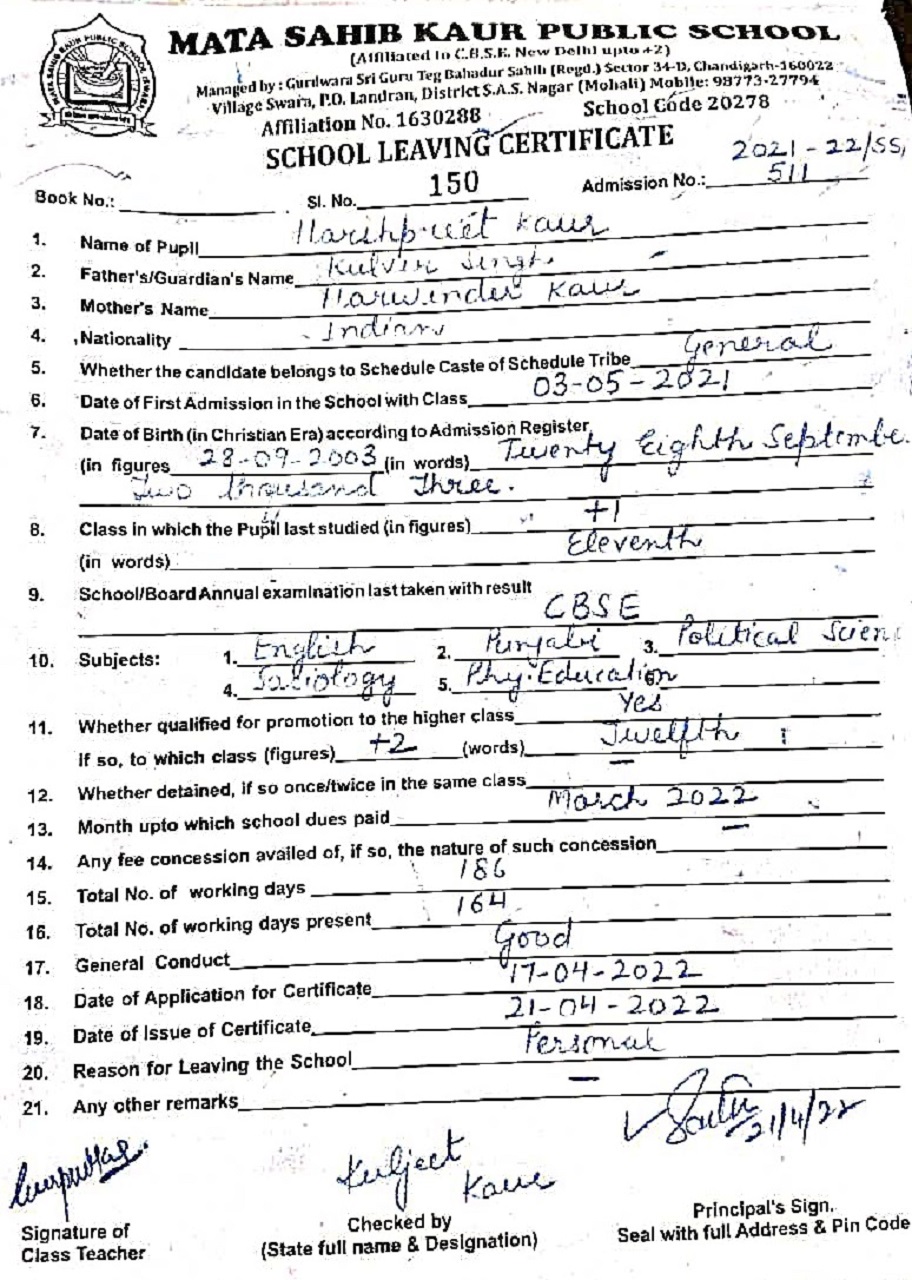 MATA SAHIB KAUR PUBLIC SCHOOL
(Affiliated to C.B.S.E. New Delhi upto +2)
Managed by : Gurdwara Sri Guru Teg Bahadur Sahib (Regd.) Sector 34-D, Chandigarh-160022
Village Swara, P.O. Landran, District S.A.S. Nagar (Mohali) Mobile: 98773-27794
Affiliation No. 1630288 School Code 20278
SCHOOL LEAVING CERTIFICATE
2021-22/SS/
Book No.: Sl. No. 150 Admission No.: 511
1. Name of Pupil Harshpreet Kaur
2. Father's/Guardian's Name Kulver Singh
3. Mother's Name Harwinder Kaur
4. Nationality Indian
5. Whether the candidate belongs to Schedule Caste of Schedule Tribe General
6. Date of First Admission in the School with Class 03-05-2021
7. Date of Birth (in Christian Era) according to Admission Register
(in figures 28-09-2003 (in words) Twenty Eighth Septembe
Two thousand Three.
8. Class in which the Pupil last studied (in figures) +1
(in words) Eleventh
9. School/Board Annual examination last taken with result
CBSE
10. Subjects: 1. English 2. Punjabi 3. Political Scien
4. Sociology 5. Phy. Education 6.
11. Whether qualified for promotion to the higher class Yes
If so, to which class (figures) +2 (words) Twelfth
12. Whether detained, if so once/twice in the same class —
13. Month upto which school dues paid March 2022
14. Any fee concession availed of, if so, the nature of such concession —
15. Total No. of working days 186
16. Total No. of working days present 164
17. General Conduct Good
18. Date of Application for Certificate 17-04-2022
19. Date of Issue of Certificate 21-04-2022
20. Reason for Leaving the School Personal
21. Any other remarks —
21/4/22
Kuljeet
Kaur
Signature of Class Teacher
Checked by
(State full name & Designation)
Principal's Sign.
Seal with full Address & Pin Code